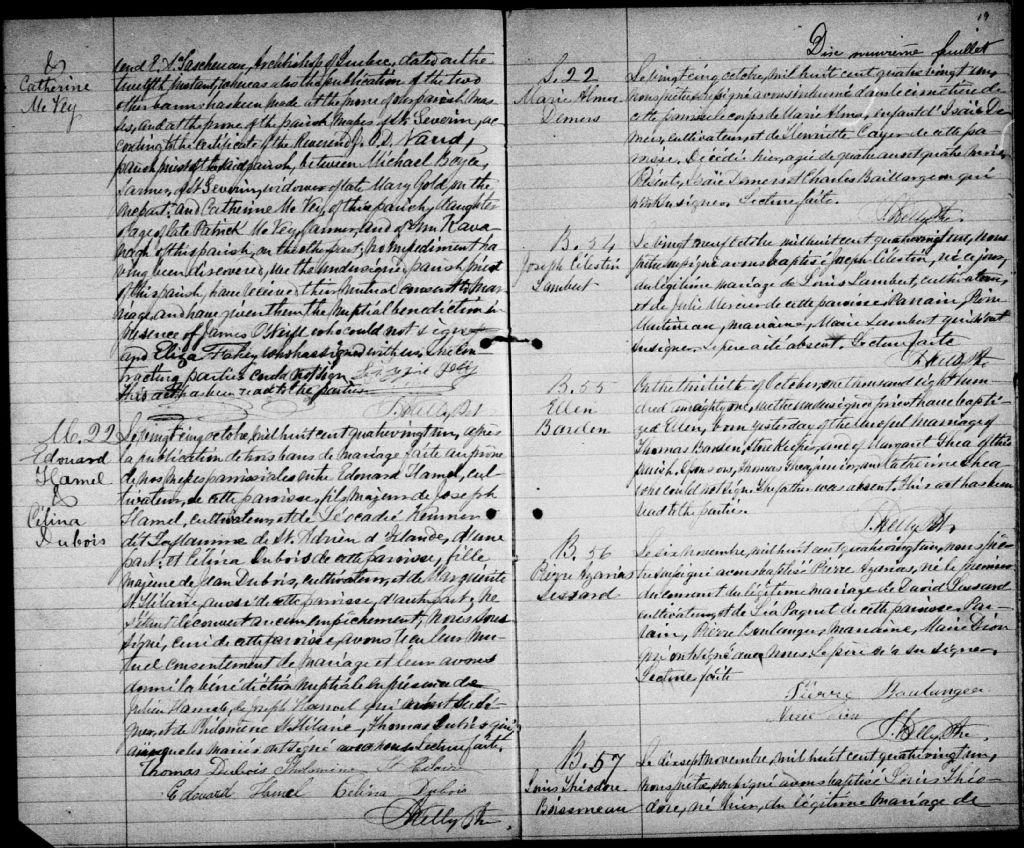 &
Catherine
Mc Vey
end E. A. Taschereau, Archbishop of Quebec, dated on the
twelfth instant, whereas also the publication of the two
other banns has been made at the prone of our parish Mas-
ses, and at the prone of the parish Masses of St. Severin, ac-
cording to the certificate of the Reverend J. O. D. Naud,
parish priest of the said parish, between Michael Boyce,
farmer, of St Severin, widower of late Mary Gold, on the
one part; and Catherine Mc Vey, of this parish, daughter
of age of late Patrick Mc Vey, farmer, and of Ann Kava-
nagh of this parish, on the other part; no impediment ha-
ving been discovered, we the undersigned parish priest
of this parish, have received their mutual consent to mar-
riage and have given them the nuptial benediction in
presence of James O'Neill, who could not sign
and Eliza Fahey, who has signed with us, the con-
tracting parties could not sign
This act has been read to the parties
J. Kelly Pst
M. 22
Edouard
Hamel
&
Célina
Dubois
Le vingt cinq octobre, mil huit cent quatre vingt un, après
la publication de trois bans de mariage faite au prone
de nos messes paroissiales entre Edouard Hamel, cul-
tivateur, de cette paroisse, fils majeur de Joseph
Hamel, cultivateur, et de Léocadie
dit Laflamme de St. Adrien d'Irlande, d'une
part; et Célina Dubois de cette paroisse, fille
majeure de Jean Dubois, cultivateur, et de Marguerite
St Hilaire, aussi de cette paroisse, d'autre part; ne
s'étant découvert aucun empêchement, Nous sous-
signé, curé de cette paroisse, avons reçu leur mu-
tuel consentement de mariage et leur avons
donné la bénédiction nuptiale en présence de
Julien Hamel, de Joseph Hamel qui
et de Philomène St Hilaire, Thomas Dubois qui
ainsi que les mariés ont signé avec nous. Lecture faite.
Thomas Dubois Philomène St Hilaire
Edouard Hamel Célina Dubois
J. Kelly Ptre
19
Dix neuvième feuillet
S. 22
Marie Alma
Demers
Le vingt cinq octobre, mil huit cent quatre vingt un,
nous prêtre soussigné avons inhumé dans le cimetière de
cette paroisse le corps de Marie Alma, enfant d'Isaïe De-
mers, cultivateur, et de Henriette Cayer de cette pa-
roisse. Décédée hier, agée de quatre ans et quatre mois.
Présents, Isaïe Demers et Charles Baillargeon qui
Lecture faite.
J. Kelly Ptre
B. 54
Joseph Célestin
Lambert
Le vingt neuf octobre mil huit cent quatre vingt un, nous
prêtre soussigné avons baptisé Joseph Célestin, né ce jour,
du légitime mariage de Louis Lambert, cultivateur,
et de Julie Mercier de cette paroisse. Parrain,
marraine, Marie Lambert qui n'ont
su signer. Le père était absent. Lecture faite
J. Kelly Pt.
B. 55
Ellen
Barden
On the thirtieth of October, one thousand eight hun-
dred and eighty one, we the undersigned priest have bapti-
zed Ellen, born yesterday of the lawful marriage of
Thomas Barden, Storekeeper, and of Margaret Shea of this
parish. Sponsors, Thomas and Catherine Shea
who could not sign. The father was absent. This act has been
read to the parties.
J. Kelly Pt.
B. 56
Pierre Azarias
Lessard
Le six novembre, mil huit cent quatre vingt un, nous prê-
tre soussigné avons baptisé Pierre Azarias, né le premier
du courant du légitime mariage de David Lessard
cultivateur, et de Léa Paquet de cette paroisse. Par-
rain, Pierre Boulanger, marraine, Marie Dion
qui ont signé avec nous. Le père n'a su signer.
Lecture faite
Pierre Boulanger
Marie Dion
J. Kelly Ptre
B. 57
Louis Théodore
Boissoneau
Le dix sept novembre, mil huit cent quatre vingt un,
nous prêtre soussigné avons baptisé Louis Théo-
dore, né hier, du légitime mariage de